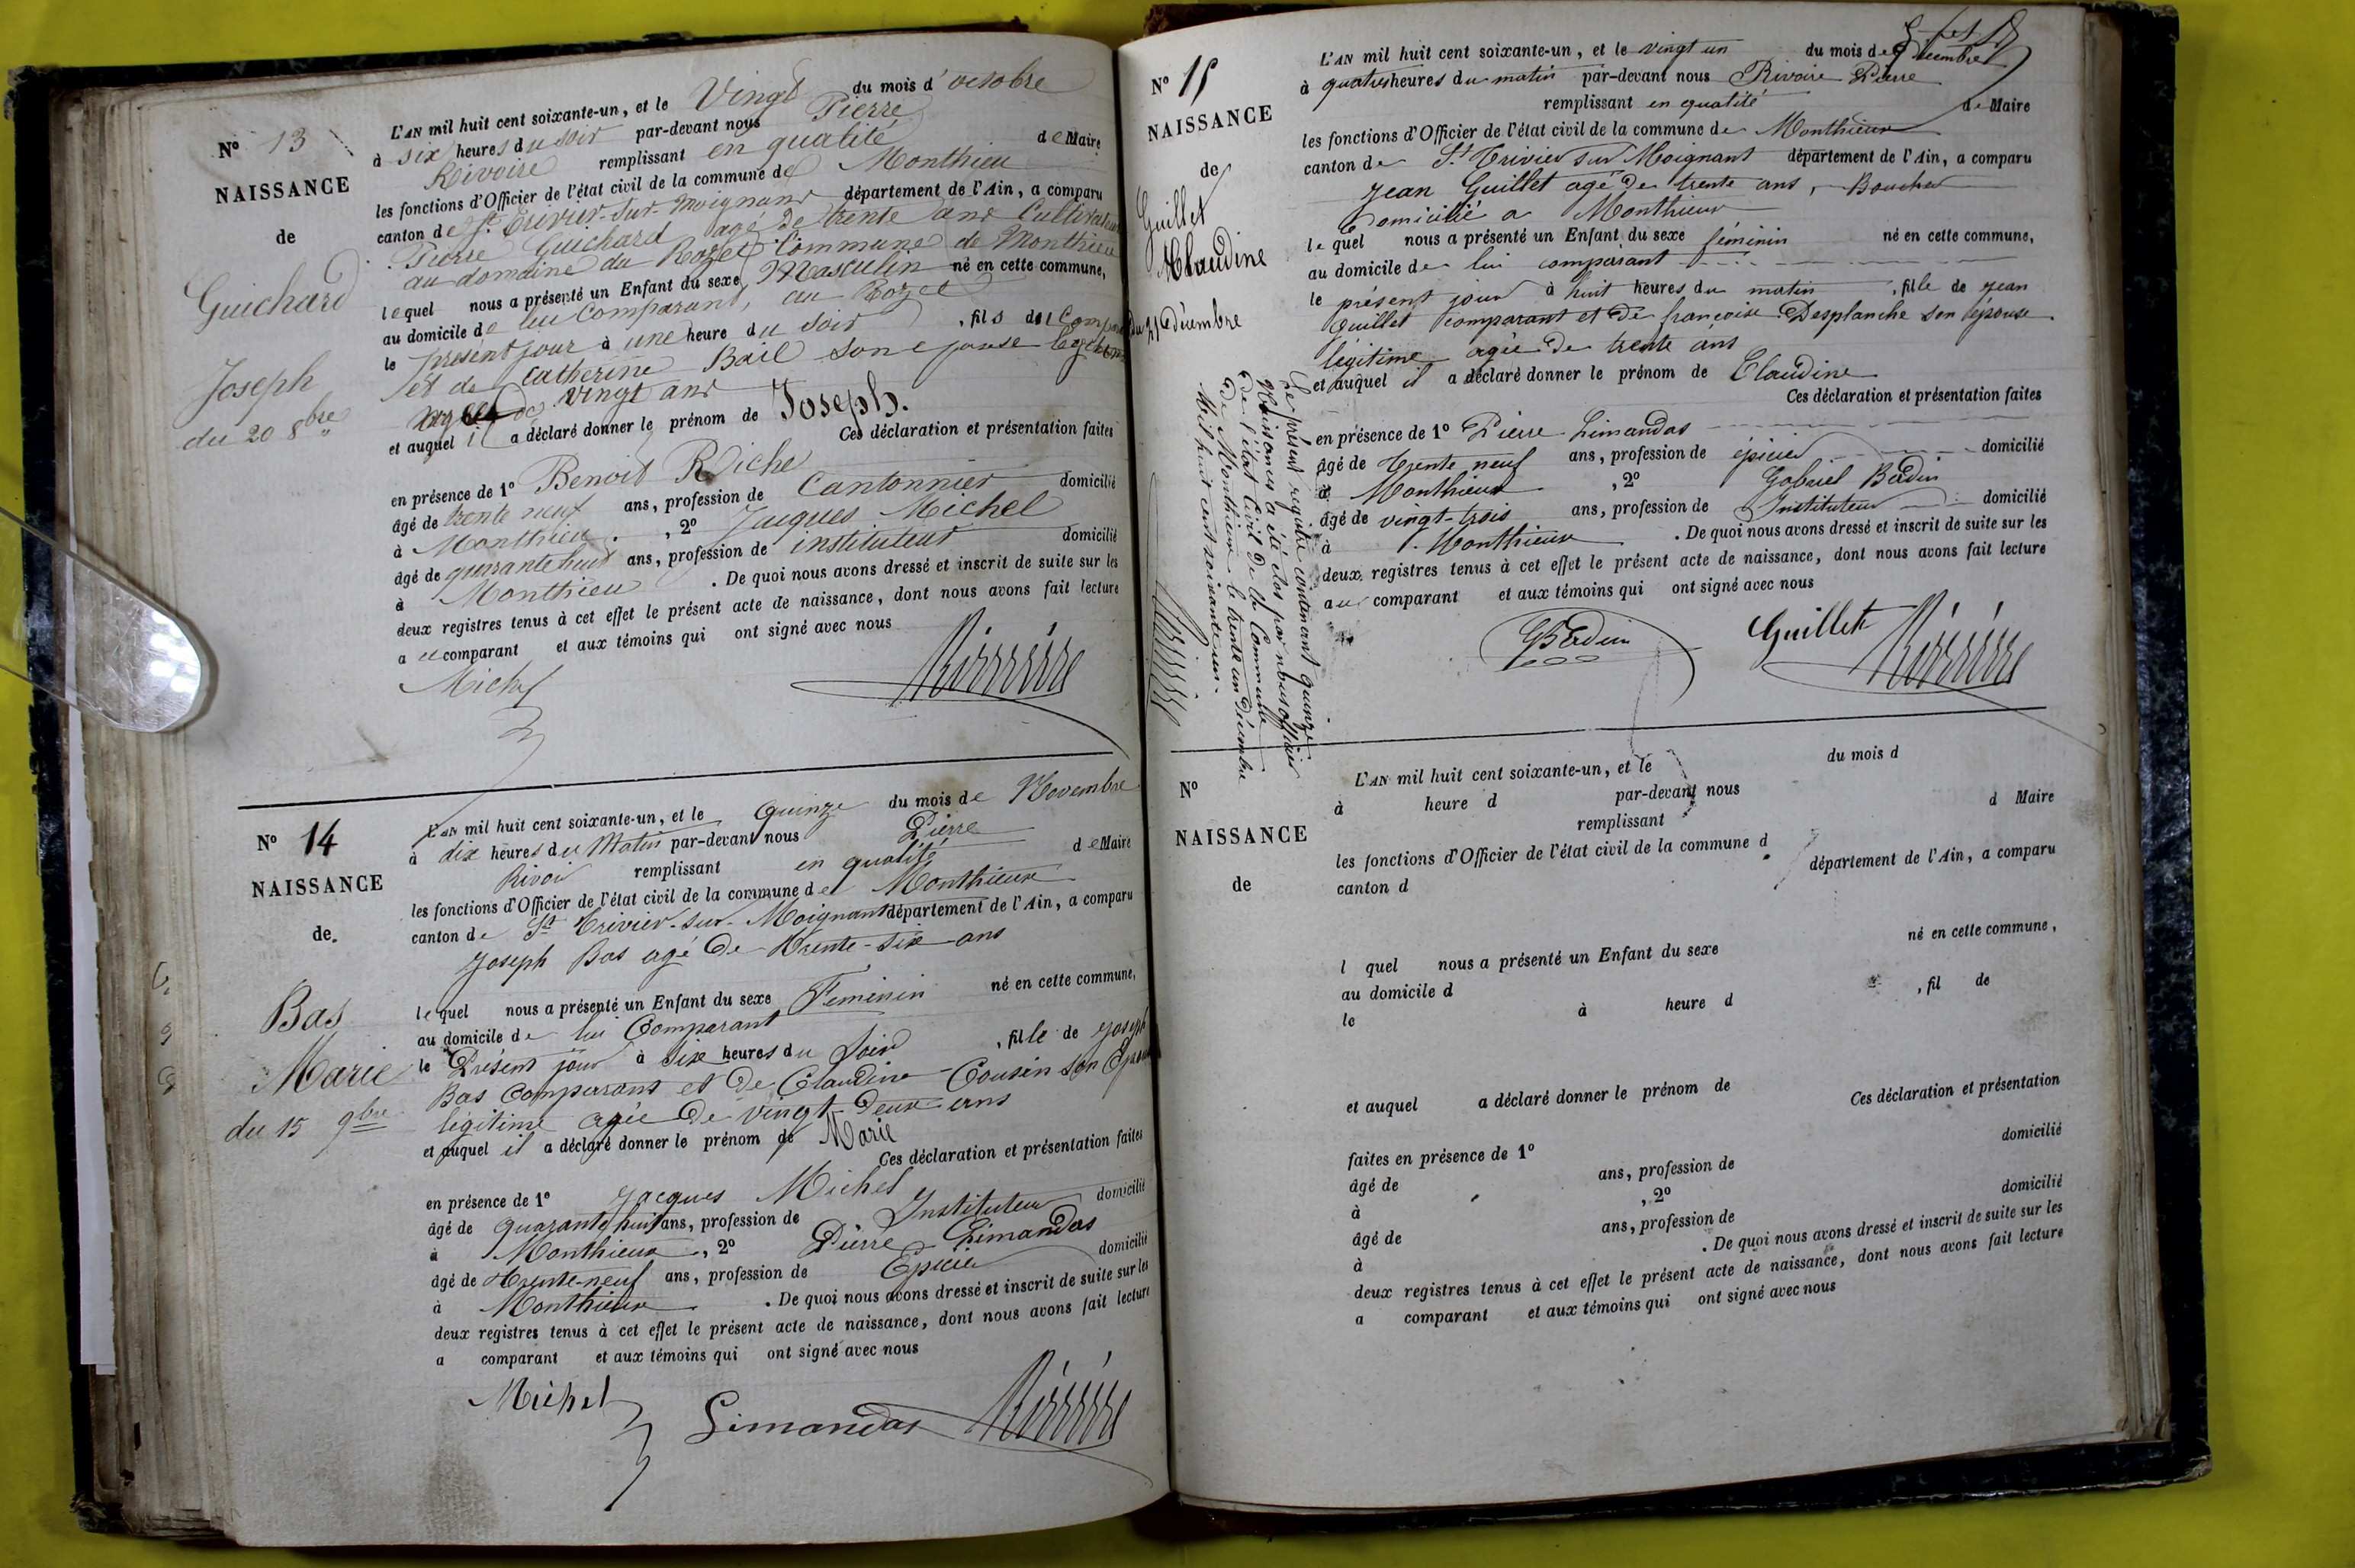 N° 13
NAISSANCE
de
Guichard
Joseph
du 20 8bre
L'AN mil huit cent soixante-un, et le Vingt du mois d'octobre
à six heures du soir par-devant nous Pierre
Rivoire remplissant en qualité de Maire
les fonctions d'Officier de l'état civil de la commune de Monthieu
canton de St. Trivier-sur-Moignans département de l'Ain, a comparu
Pierre Guichard agé de trente ans Cultivateur
au domaine du Rozet Commune de Monthieu
lequel nous a présenté un Enfant du sexe Masculin né en cette commune,
au domicile de lui Comparant, au Rozet
le présent jour à une heure du soir, fils du Comparant
et de Catherine Bail son épouse légitime
de vingt ans
et auquel il a déclaré donner le prénom de Joseph.
Ces déclaration et présentation faites
en présence de 1° Benoit Riche
âgé de trente neuf ans, profession de Cantonnier domicilié
à Monthieu. , 2° Jacques Michel
âgé de quarante huit ans, profession de instituteur domicilié
à Monthieu . De quoi nous avons dressé et inscrit de suite sur les
deux registres tenus à cet effet le présent acte de naissance, dont nous avons fait lecture
au comparant et aux témoins qui ont signé avec nous
Michel Rivoire
N° 14
NAISSANCE
de
Bas
Marie
du 15 9bre
L'AN mil huit cent soixante-un, et le Quinze du mois de Novembre
à dix heures du Matin par-devant nous Pierre
Rivoir remplissant en qualité de Maire
les fonctions d'Officier de l'état civil de la commune de Monthieux
canton de St Trivier-sur-Moignans département de l'Ain, a comparu
Joseph Bas agé de Trente-six ans
lequel nous a présenté un Enfant du sexe Feminin né en cette commune,
au domicile de lui Comparant
le Présent jour à six heures du soir, fille de Joseph
Bas Comparant et de Claudine Cousin son Epouse
légitime agée de vingt-deux ans
et auquel il a déclaré donner le prénom de Marie
Ces déclaration et présentation faites
en présence de 1° Jacques Michel
âgé de quarante huit ans, profession de Instituteur domicilié
à Monthieux , 2° Pierre Limandas
âgé de Trente-neuf ans, profession de Epicier domicilié
à Monthieux . De quoi nous avons dressé et inscrit de suite sur les
deux registres tenus à cet effet le présent acte de naissance, dont nous avons fait lecture
a comparant et aux témoins qui ont signé avec nous
Michel Limandas Rivoire
N° 15
NAISSANCE
de
Guillet
Claudine
du 21 Décembre
L'AN mil huit cent soixante-un, et le vingt un du mois de Décembre
à quatre heures du matin par-devant nous Rivoire Pierre
remplissant en qualité de Maire
les fonctions d'Officier de l'état civil de la commune de Monthieux
canton de St Trivier sur Moignant département de l'Ain, a comparu
Jean Guillet agé de trente ans, Boucher
Domicilié a Monthieux
lequel nous a présenté un Enfant du sexe féminin né en cette commune,
au domicile de lui comparant
le présent jour à huit heures du matin, fille de Jean
Guillet comparant et de françoise Desplanche son épouse
légitime agée de trente ans
et auquel il a déclaré donner le prénom de Claudine
Ces déclaration et présentation faites
en présence de 1° Pierre Limandas
âgé de Trente neuf ans, profession de épicier domicilié
à Monthieux , 2° Gabriel Badin
âgé de vingt-trois ans, profession de Instituteur domicilié
à Monthieux . De quoi nous avons dressé et inscrit de suite sur les
deux registres tenus à cet effet le présent acte de naissance, dont nous avons fait lecture
au comparant et aux témoins qui ont signé avec nous
GBadin Guillet Rivoire
Le présent registre contenant quinze
Naissances a été clos par nous officier
de l'état Civil de la Commune
de Monthieux le trente un Décembre
Mil huit cent soixante un.
Rivoire
N°
NAISSANCE
de
L'AN mil huit cent soixante-un, et le du mois d
à heure d par-devant nous
remplissant d Maire
les fonctions d'Officier de l'état civil de la commune d
canton d département de l'Ain, a comparu
l quel nous a présenté un Enfant du sexe né en cette commune,
au domicile d
le à heure d , fil de
et auquel a déclaré donner le prénom de
Ces déclaration et présentation
faites en présence de 1°
âgé de ans, profession de domicilié
à , 2°
âgé de ans, profession de domicilié
à . De quoi nous avons dressé et inscrit de suite sur les
deux registres tenus à cet effet le présent acte de naissance, dont nous avons fait lecture
a comparant et aux témoins qui ont signé avec nous